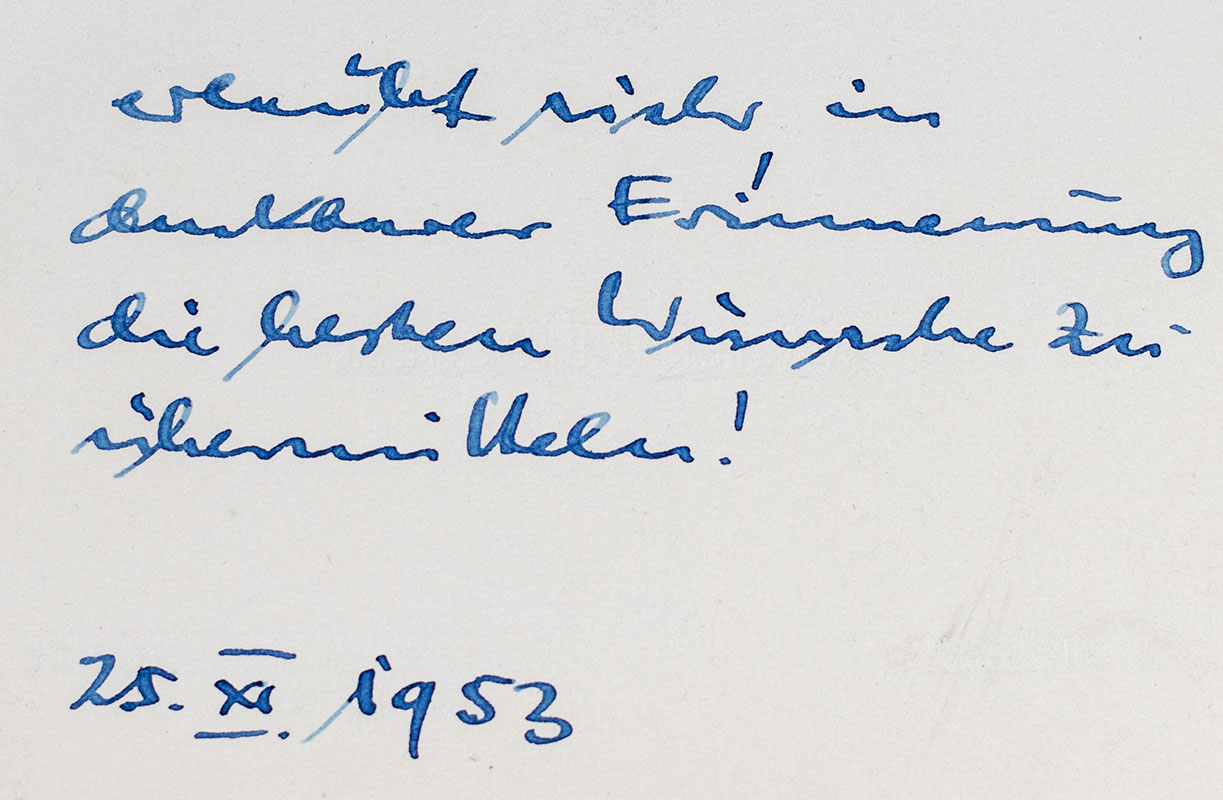 erlaubt sich in
dankbarer Erinnerung
die besten Wünsche zu
übermitteln!
25. XI. 1953